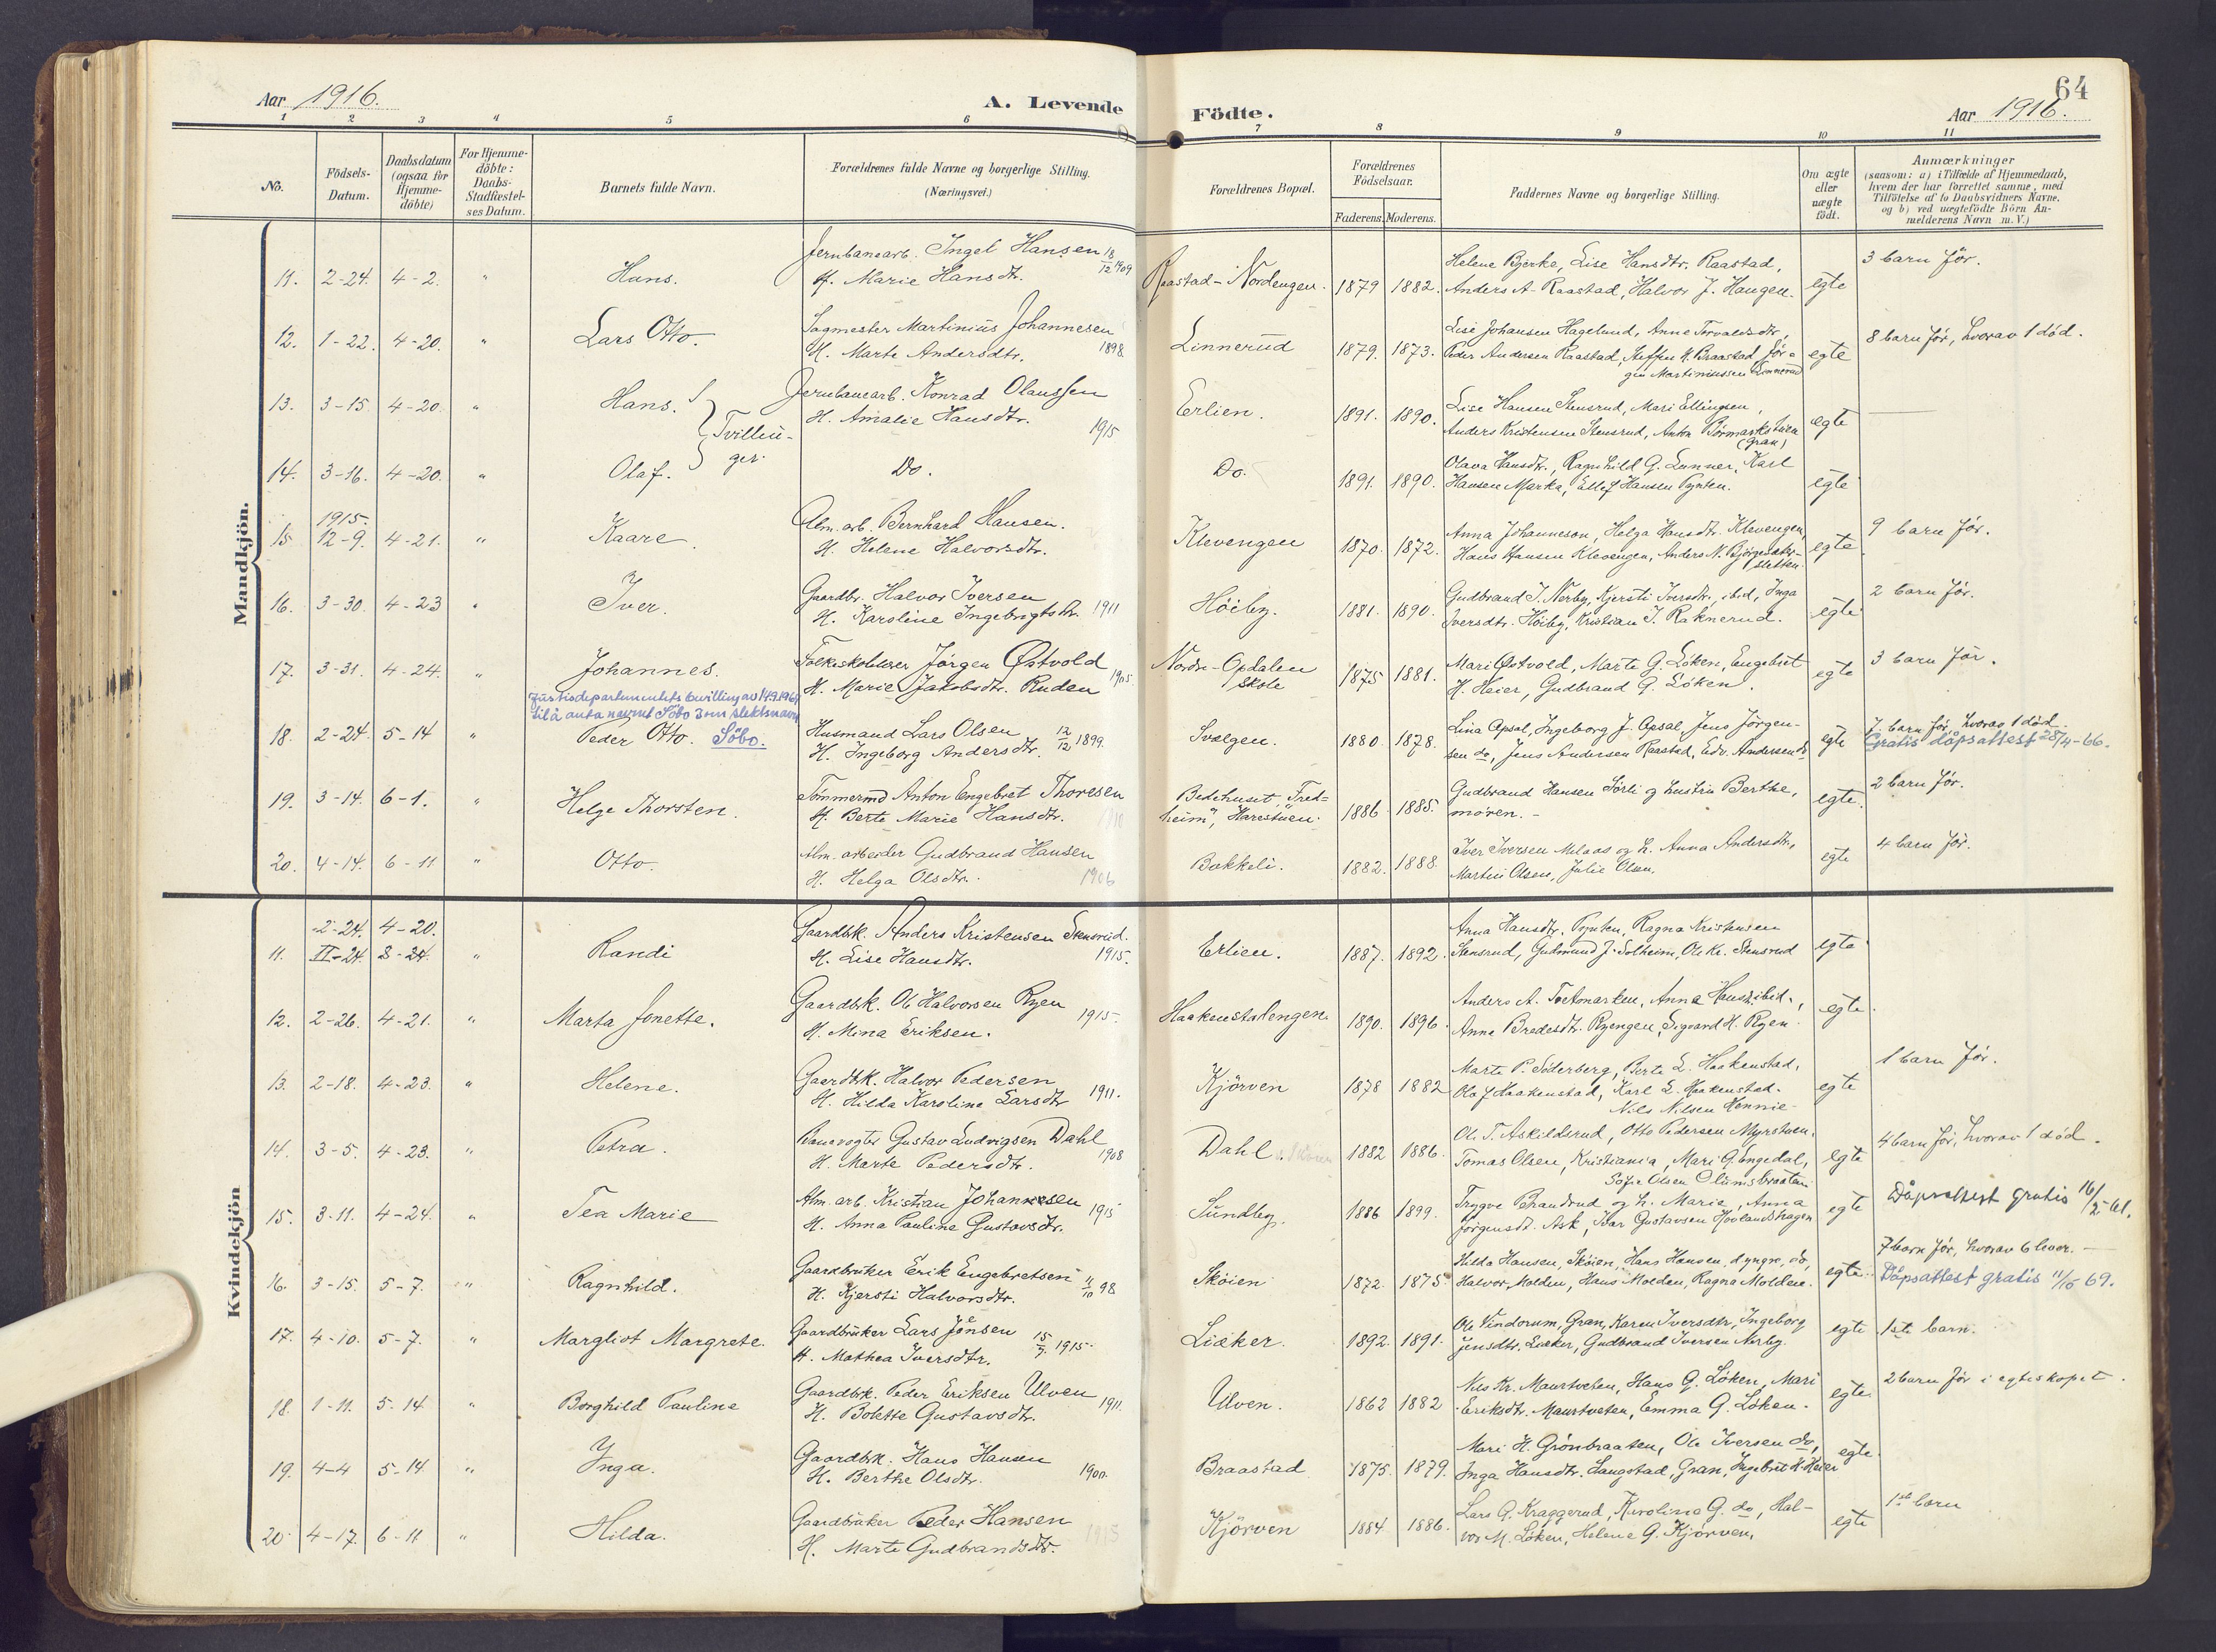 Aar 1916.
A. Levende
Födte.
64
Aar 1916.
1 2 3 4 5 6 7 8 9 10 11
No.
Födsels-
Datum.
Daabsdatum
(ogsaa for
Hjemme-
döbte)
For Hjemme-
döbte:
Daabs-
Stadfæstel-
ses Datum.
Barnets fulde Navn.
Forældrenes fulde Navne og borgerlige Stilling.
(Næringsvei.)
Forældrenes Bopæl.
Forældrenes
Födselsaar.
Faderens. Moderens.
Faddernes Navne og borgerlige Stilling.
Om ægte
eller
uægte
födt.
Anmærkninger
(saasom: a) i Tilfælde af Hjemmedaab,
hvem der har forrettet samme, med
Tilföielse af to Daabsvidners Navne.
og b) ved uægtefödte Börn An-
melderens Navn m. V.)
Mandkjön.
11. 2-24. 4-2. " Hans.
Jernbanearb. Ingel Hansen 18/12 1909
H. Marie Hansdtr.
Raastad-Nordengen. 1879 1882.
Helene Bjerke, Lise Hansdtr. Raastad,
Anders A. Raastad, Halvor J. Haugen.
egte
3 barn før.
12. 1-22. 4-20. " Lars Otto.
Sagmester Martinius Johannesen
H. Marte Andersdtr. 1898
Linnerud 1879. 1873.
Lise Johansen Hagelund, Anne Torvaldsdtr,
Peder Andersen Raastad, Steffen H. Braastad Jör-
gen Martiniussen Linnerud
egte
8 barn før, hvorav 1 død.
13. 3-15. 4-20. " Hans. } Tvillin-
ger.
Jernbanearb. Konrad Olaussen
H. Amalie Hansdtr. 1915
Erlien. 1891. 1890.
Lise Hansen Stensrud, Mari Ellingsen,
Anders Kristensen Stensrud, Anton
(Gran)
egte
14. 3-16. 4-20. " Olaf.
Do.
Do. 1891. 1890.
Olava Hansdtr., Ragnhild G. Lunner, Karl
Hansen Marka, Ellef Hansen Pynten.
egte
15 1915. 12-9. 4-21. " Kaare.
Alm. arb. Bernhard Hansen.
H. Helene Halvorsdtr.
Klevengen 1870. 1872.
Anna Johanneson, Helga Hansdtr. Klevengen,
Hans Hansen Klevengen, Anders N. Bjørgesæter-
sletten.
egte
9 barn før.
16. 3-30. 4-23 " Iver.
Gaardbr. Halvor Iversen
H. Karoline Ingebrigtsdtr. 1911
Höiby. 1881. 1890.
Gudbrand I. Nerby, Kjersti Iversdtr., ibid, Inga
Iversdtr. Höiby, Kristian I. Raknerud.
egte
2 barn før.
17. 3-31. 4-24. " Johannes.
Folkeskolelærer Jörgen Østvold
H. Marie Jakobsdtr. Ruden 1905
Nordre-Opdalen
skole 1875 1881.
Mari Østvold, Marte G. Løken, Engebret
H. Heier, Gudbrand G. Løken.
egte
3 barn før.
Justisdepartementets bevilling av 14.9.1962
til å anta navnet Söbo som slektsnavn
18. 2-24. 5-14 " Peder Otto. Söbo.
Husmand Lars Olsen
H. Ingeborg Andersdtr. 12/12 1899.
Svælgen. 1880. 1878.
Lina Opsal, Ingeborg J. Opsal, Jens Jörgen-
sen do, Jens Andersen Raastad, Edv. Andersen do
egte
7 barn før, hvorav 1 død.
Gratis dåpsattest 28/4-66.
19. 3-14. 6-1. " Helge Thorsten.
Tømmermd Anton Engebret Thoresen
H. Berte Marie Hansdtr.
Bedehuset "Fred-
heim", Harestuen. 1886 1885.
Gudbrand Hansen Sörli og hustru Berthe,
møren. -
egte.
2 barn før.
20. 4-14. 6-11 " Otto.
Alm. arbeider Gudbrand Hansen
H. Helga Olsdtr. 1906
Bakkeli. 1882. 1888.
Iver Iversen Melaas og h. Anna Andersdtr,
Martin Olsen, Julie Olsen.
egte
4 barn før.
Kvindekjön
11. 2-24. 4-20. " Randi
II-24. 3-24.
Gaardbk. Anders Kristensen Stensrud.
H. Lise Hansdtr. 1915.
Erlien. 1887. 1892.
Anna Hansdtr. Pynten, Ragna Kristensen
Stensrud, Gudmund J. Solheim, Ole Kr. Stensrud
egte
12. 2-26. 4-21. " Marta Jonette.
Gaardbk. Ole Halvorsen Ryen
H. Mina Eriksen. 1915.
Haakenstadengen. 1890. 1896.
Anders A. Toftmarken, Anna Hans. ibid.,
Anna Bredesdtr. Ryengen, Sigvard H. Ryen.
egte.
13. 2-18. 4-23. " Helene.
Gaardbk. Halvor Pedersen
H. Hilda Karoline Larsdtr 1911.
Kjörven 1878 1882
Marte P. Söderberg, Berte L. Haakenstad,
Ola J Haakenstad, Karl L. Haakenstad.
Nils Nilsen Hennie
egte
1 barn før.
14. 3-5. 4-23. " Petra.
Banevogter Gustav Ludvigsen Dahl
H. Marte Pedersdtr. 1908
Dahl. 1882 1886.
Ole T. Askilderud, Otto Pedersen Myrstuen,
Tomas Olsen, Kristiania, Mari G. Engedal,
Sofie Olsen Olimsbraaten
egte
4 barn før, hvorav 1 død.
15. 3-11. 4-24. " Tea Marie
Alm. arb. Kristian Johannesen
H. Anna Pauline Gustavsdtr. 1915
Sundby. 1886 1899.
Trygve Behandrud og h. Marie, Anna
Jörgensdt. Ask, Ivar Gustavsen Hovlandshagen
egte
Dåpsattest gratis 16/2-61.
16. 3-15. 5-7. " Ragnhild.
Gaardbruker Erik Engebretsen
H. Kjersti Halvorsdtr. 11/10 98
Skøien 1872. 1875.
Hilda Hansen, Skøien, Hans Hansen d yngre, do,
Halvor Molden, Hans Molden, Ragna Molden.
egte.
7 barn før, hvorav 6 lever. -
Dåpsattest gratis 11/6 69.
17. 4-10. 5-7. " Margliot Margrete.
Gaardbruker Lars Jönsen
H. Mathea Iversdtr. 15/7. 1915.
Liæker. 1892. 1891.
Ole Vindorum, Gran, Karen Iversdtr, Ingeborg
Jensdtr. Liæker, Gudbrand Iversen Nerby.
egte
1ste barn.
18. 1-11. 5-14 " Borghild Pauline
Gaardbk. Peder Eriksen Ulven
H. Bolette Gustavsdtr. 1911.
Ulven. 1862 1882
Nils Kr. Maurtveten, Hans G. Løken, Mari
Eriksdtr. Maurtveten, Emma G. Løken.
egte.
2 barn før i egteskapet.
19. 4-4 5-14 " Ynga.
Gaardbk. Hans Hansen
H. Berthe Olsdtr. 1900.
Braastad 1875. 1879.
Mari H. Grönbraaten, Ole Iversen do,
Inga Hansdtr. Langstad, Gran, Ingebret H. Heier
egte.
20 4-17. 6-11 " Hilda.
Gaardbruker Peder Hansen
H. Marte Gudbrandsdtr. 1915
Kjörven 1884. 1886.
Lars G. Kraggerud, Karoline G. do, Hal-
vor M. Løken, Helene G. Kjörven.
egte
1ste barn